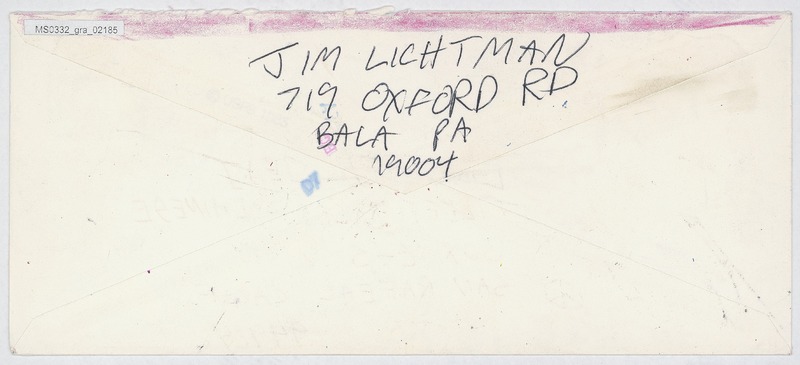 MS0332_gra_02185
JIM LICHTMAN
719 OXFORD RD
BALA PA
19004